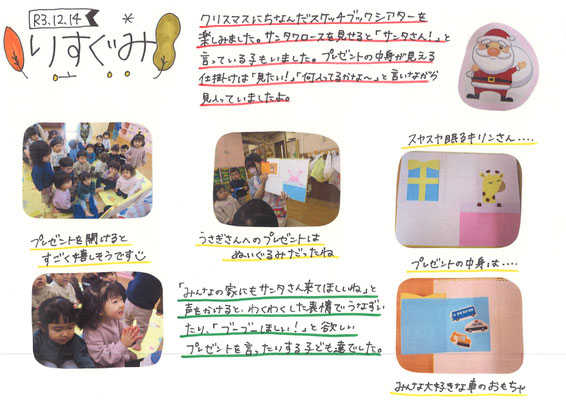 R3.12.14
りすぐみ
クリスマスにちなんだスケッチブックシアターを
楽しみました。サンタクロースを見せると「サンタさん！」と
言っている子もいました。プレゼントの中身が見える
仕掛けは「見たい！」「何入ってるかな～」と言いながら
見入っていましたよ。
スヤスヤ眠るキリンさん....
プレゼントを開けると
すごく嬉しそうです
うさぎさんへのプレゼントは
ぬいぐるみだったね
プレゼントの中身は....
「みんなの家にもサンタさん来てほしいね」と
声をかけると、わくわくした表情でうなずい
たり、「ブーブーほしい！」と欲しい
プレゼントを言ったりする子ども達でした。
みんな大好きな車のおもちゃ